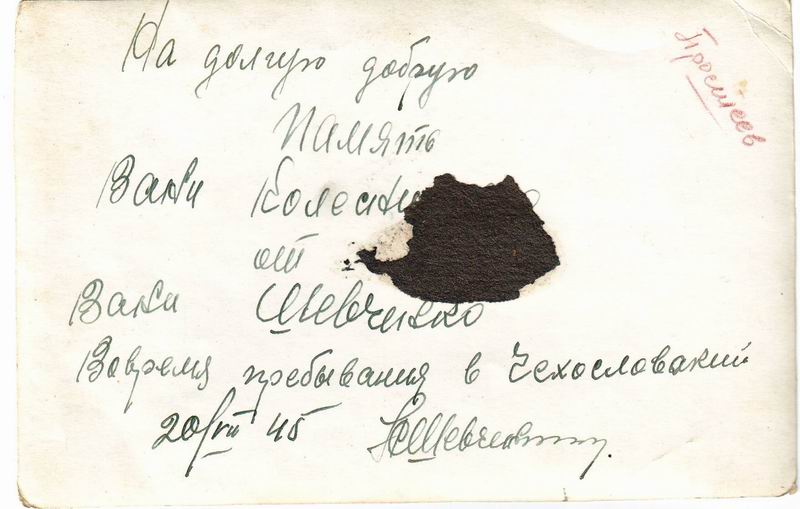 На долгую добрую
Память
Вани
от
Вани Шевченко
Вовремя пребывания в Чехословакий
20/VII 45 Шевченко
Простеев